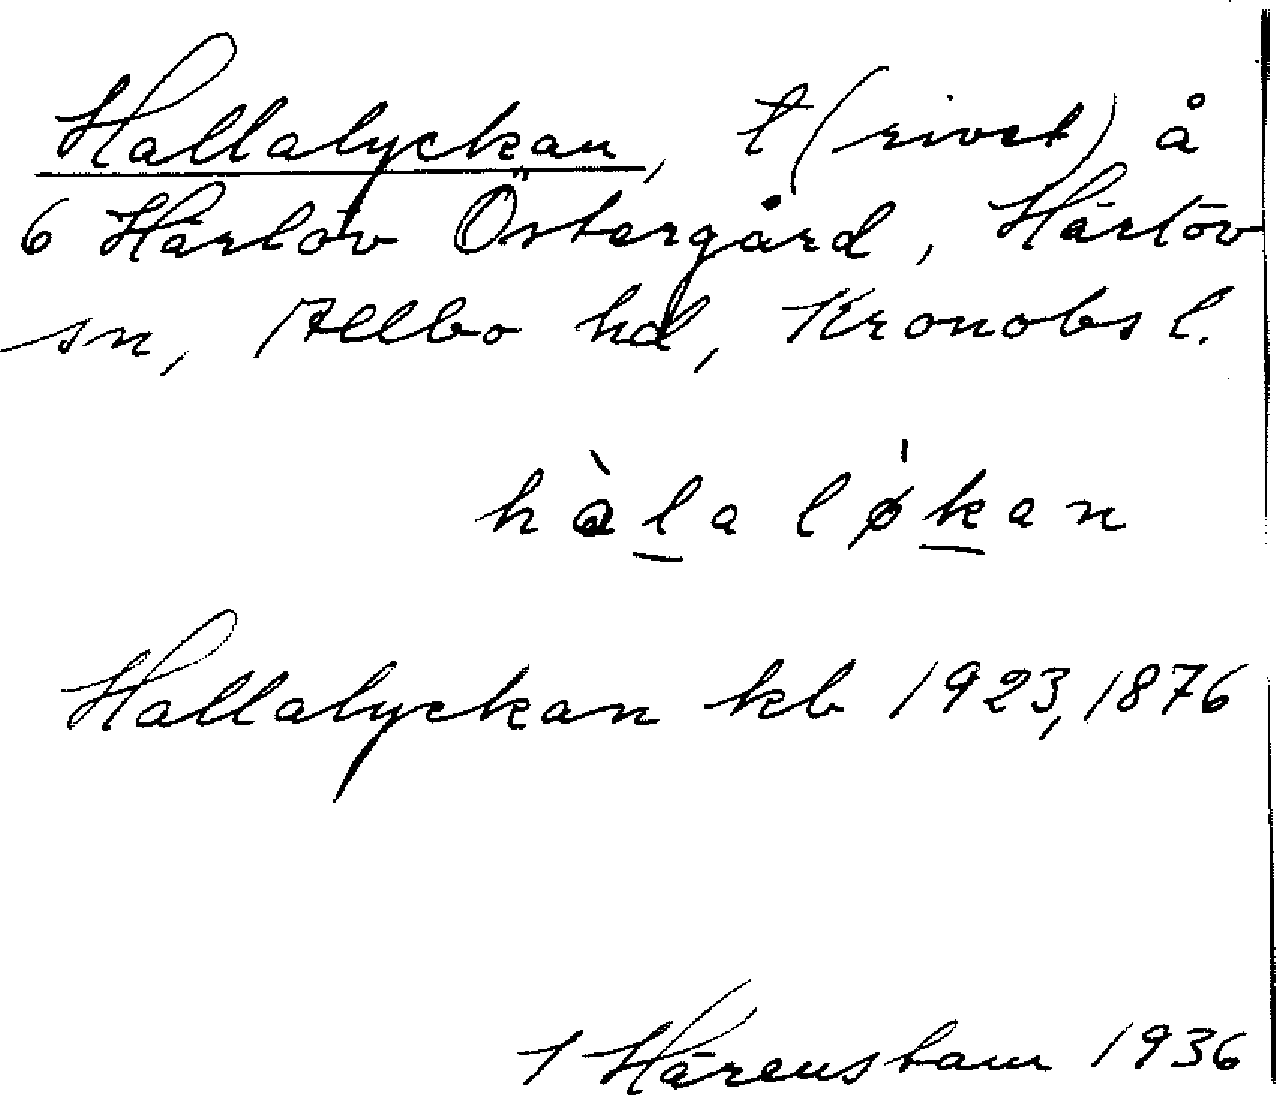 Hallalyckan, t (rivet) å
6 Härlöv Östergård, Härlöv
sn, Allbo hd, Kronobs l.
hàla løkan
Hallalyckan kb 1923, 1876
I Härenstam 1936